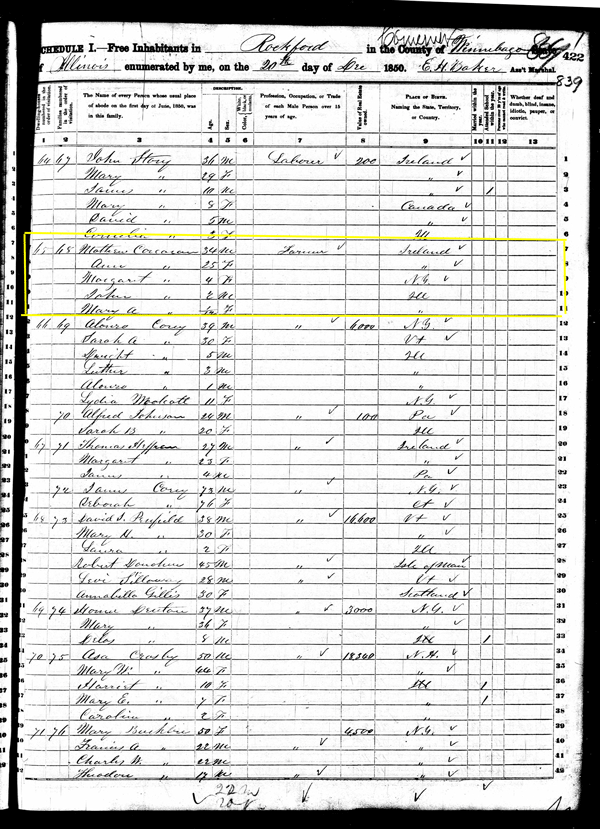 SCHEDULE I.—Free Inhabitants in Rockford in the County of Winnebago State
of Illinois enumerated by me, on the 20th day of Dec 1850. E. H. Baker Ass't Marshal.
422
839
The Name of every Person whose usual place of abode on the first day of June, 1850, was in this family.
DESCRIPTION.
Age. Sex.
Profession, Occupation, or Trade of each Male Person over 15 years of age.
Value of Real Estate owned.
PLACE OF BIRTH. Naming the State, Territory, or Country.
Whether deaf and dumb, blind, insane, idiotic, pauper, or convict.
1 2 3 4 5 6 7 8 9 10 11 12 13
64 67 John Story 36 M Labourer 200 Ireland 1
Mary " 29 F " 2
James " 10 M " 1 3
Mary " 8 F Canada 4
David " 5 M " 5
Cornelia " 2 F Ill 6
65 68 Mathew Corcoran 34 M Farmer Ireland 7
Ann " 25 F " 8
Margaret " 4 F N.Y. 9
John " 2 M Ill 10
Mary A. " F " 11
66 69 Alonzo Corey 39 M " 6000 N.Y. 12
Sarah A " 30 F Vt 13
Dwight " 5 M Ill 14
Luther " 3 M " 15
Alonzo " 1 M " 16
Lydia 11 F N.Y. 17
70 Alfred Johnson 24 M " 100 Pa 18
Sarah B " 20 F Ill 19
67 71 Thomas 27 M " Ireland 20
Margaret " 23 F " 21
James " 4 M Pa 22
72 James Corey 73 M " N.Y. 23
Deborah " 76 F Ct 24
68 73 David S. 38 M " 16,600 Vt 25
Mary H. " 30 F " 26
Laura " 2 F Ill 27
Robert Donohue 45 M " Isle of Man 28
Levi 28 M " Vt 29
Annabella Gillis 30 F Scotland 30
69 74 37 M " 3000 N.Y. 31
Mary " 36 F " 32
Delos " 8 M Ill 1 33
70 75 Asa Crosby 50 M " 18340 N.H. 34
Mary W. " 44 F " 35
Harriet " 10 F Ill 1 36
Mary E. " 7 F " 1 37
Caroline " 2 F " 38
71 76 Mary 50 F 4500 N.Y. 39
Francis A " 22 M " " 40
Charles W. " 22 M " 41
Theodore " 17 M " " 42